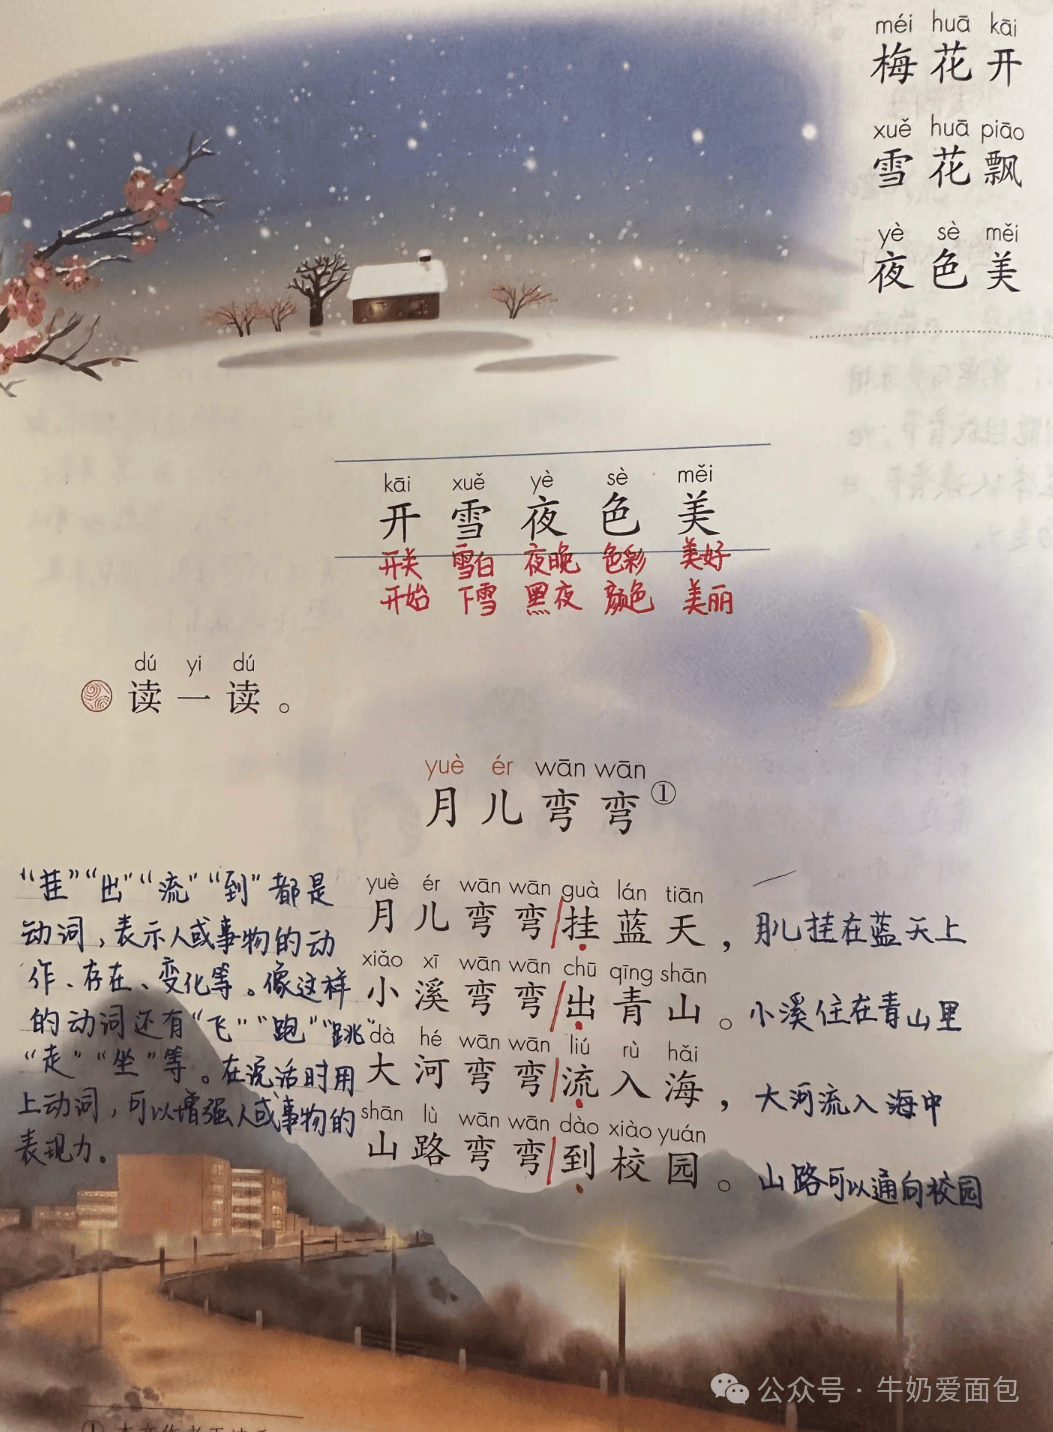 méi huā kāi
梅花开
xuě huā piāo
雪花飘
yè sè měi
夜色美
kāi xuě yè sè měi
开 雪 夜 色 美
开关 雪白 夜晚 色彩 美好
开始 下雪 黑夜 颜色 美丽
dú yi dú
读一读。
yuè ér wān wān
月儿弯弯①
“挂”“出”“流”“到”都是
动词，表示人或事物的动
作、存在、变化等。像这样
的动词还有“飞”“跑”“跳”
“走”“坐”等。在说话时用
上动词，可以增强人或事物的
表现力。
yuè ér wān wān guà lán tiān
月儿弯弯/挂蓝天，月儿挂在蓝天上
xiǎo xī wān wān chū qīng shān
小溪弯弯/出青山。小溪住在青山里
dà hé wān wān liú rù hǎi
大河弯弯/流入海，大河流入海中
shān lù wān wān dào xiào yuán
山路弯弯/到校园。山路可以通向校园
公众号·牛奶爱面包